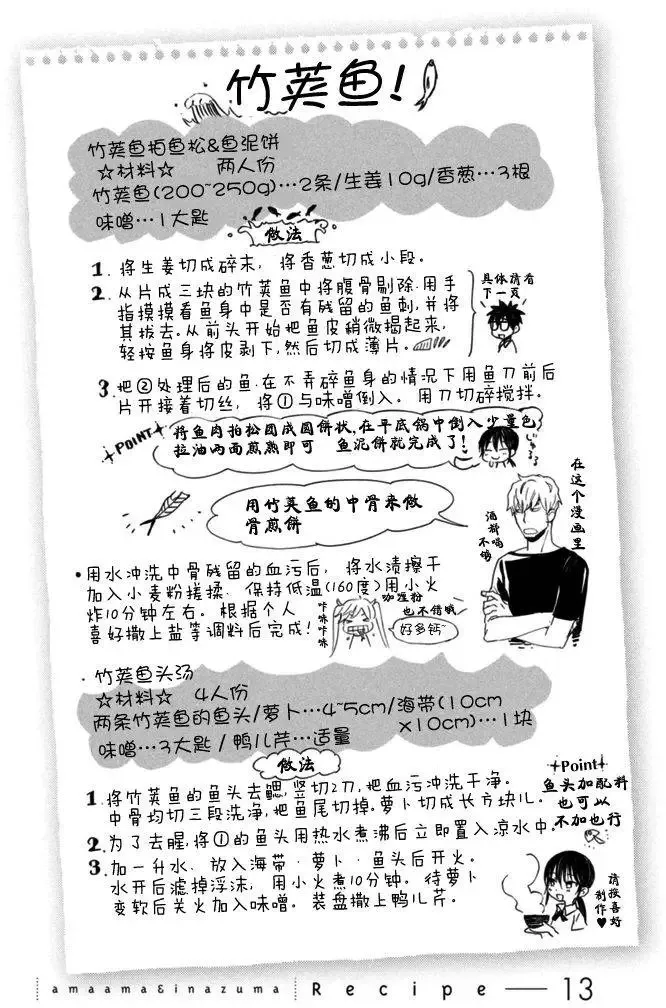 竹荚鱼!
竹荚鱼拍鱼松&鱼泥饼
☆材料☆ 两人份
竹荚鱼(200~250g)…2条/生姜10g/香葱…3根
味噌…1大匙
做法
1. 将生姜切成碎末, 将香葱切成小段。
2. 从片成三块的竹荚鱼中将腹骨剔除.用手
指摸摸看鱼身中是否有残留的鱼刺,并将
其拔去。从前头开始把鱼皮稍微揭起来,
轻按鱼身将皮剥下,然后切成薄片。
具体请看
下一页
3.把②处理后的鱼.在不弄碎鱼身的情况下用鱼刀前后
片开接着切丝, 将①与味噌倒入。用刀切碎搅拌。
POINT
将鱼肉拍松团成圆饼状,在平底锅中倒入少量色
拉油两面煎熟即可 鱼泥饼就完成了!
用竹荚鱼的中骨来做
骨煎饼
在这个漫画里
酒都喝不够
·用水冲洗中骨残留的血污后, 将水渍擦干
加入小麦粉搓揉. 保持低温(160度)用小火
炸10分钟左右。根据个人
喜好撒上盐等调料后完成!
咔咔
咻咻
咖喱粉
也不错哦
好多钙~
·竹荚鱼头汤
☆材料☆ 4人份
两条竹荚鱼的鱼头/萝卜…4~5cm/海带(10cm
x10cm)…1块
味噌…3大匙/鸭儿芹…适量
做法
1.将竹荚鱼的鱼头去鳃,竖切2刀,把血污冲洗干净。
中骨均切三段洗净,把鱼尾切掉。萝卜切成长方块儿。
2.为了去腥,将①的鱼头用热水煮沸后立即置入凉水中。
3.加一升水. 放入海带·萝卜·鱼头后开火。
水开后滤掉浮沫, 用小火煮10分钟。待萝卜
变软后关火加入味噌。装盘撒上鸭儿芹。
Point
鱼头加配料
也可以
不加也行
请按喜好
制作♥
amaama&inazuma Recipe — 13